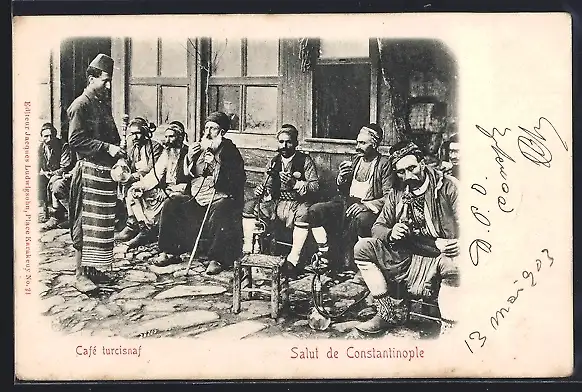 Editeur Jacques Ludwigsohn, Place Karakeuy No. 21
Café turcisnaf
Salut de Constantinople
13 mai 903